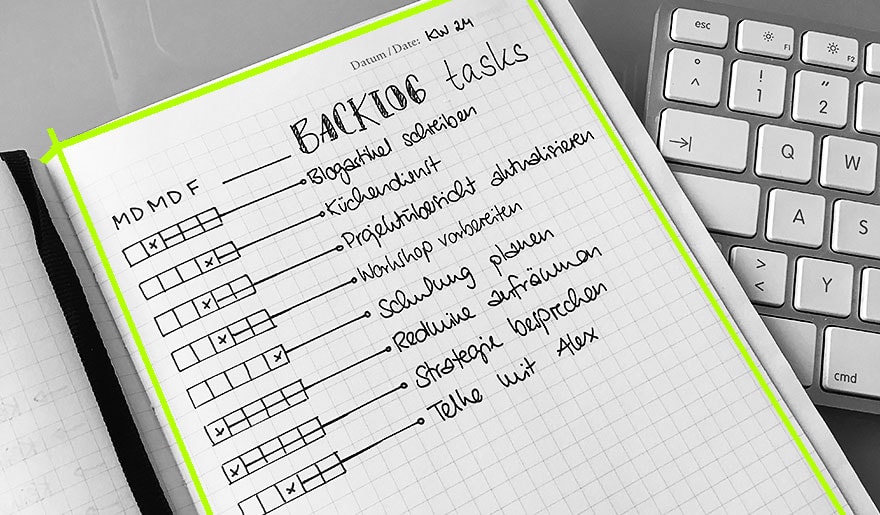 Datum / Date: KW 24
BACKLOG tasks
M D M D F
Blogartikel schreiben
Küchendienst
Projektübersicht aktualisieren
Workshop vorbereiten
Schulung planen
Redmine aufräumen
Strategie besprechen
Telko mit Alex
esc F1 F2
° ^ ! 1 " 2
Q W
A S
> < Y X
cmd